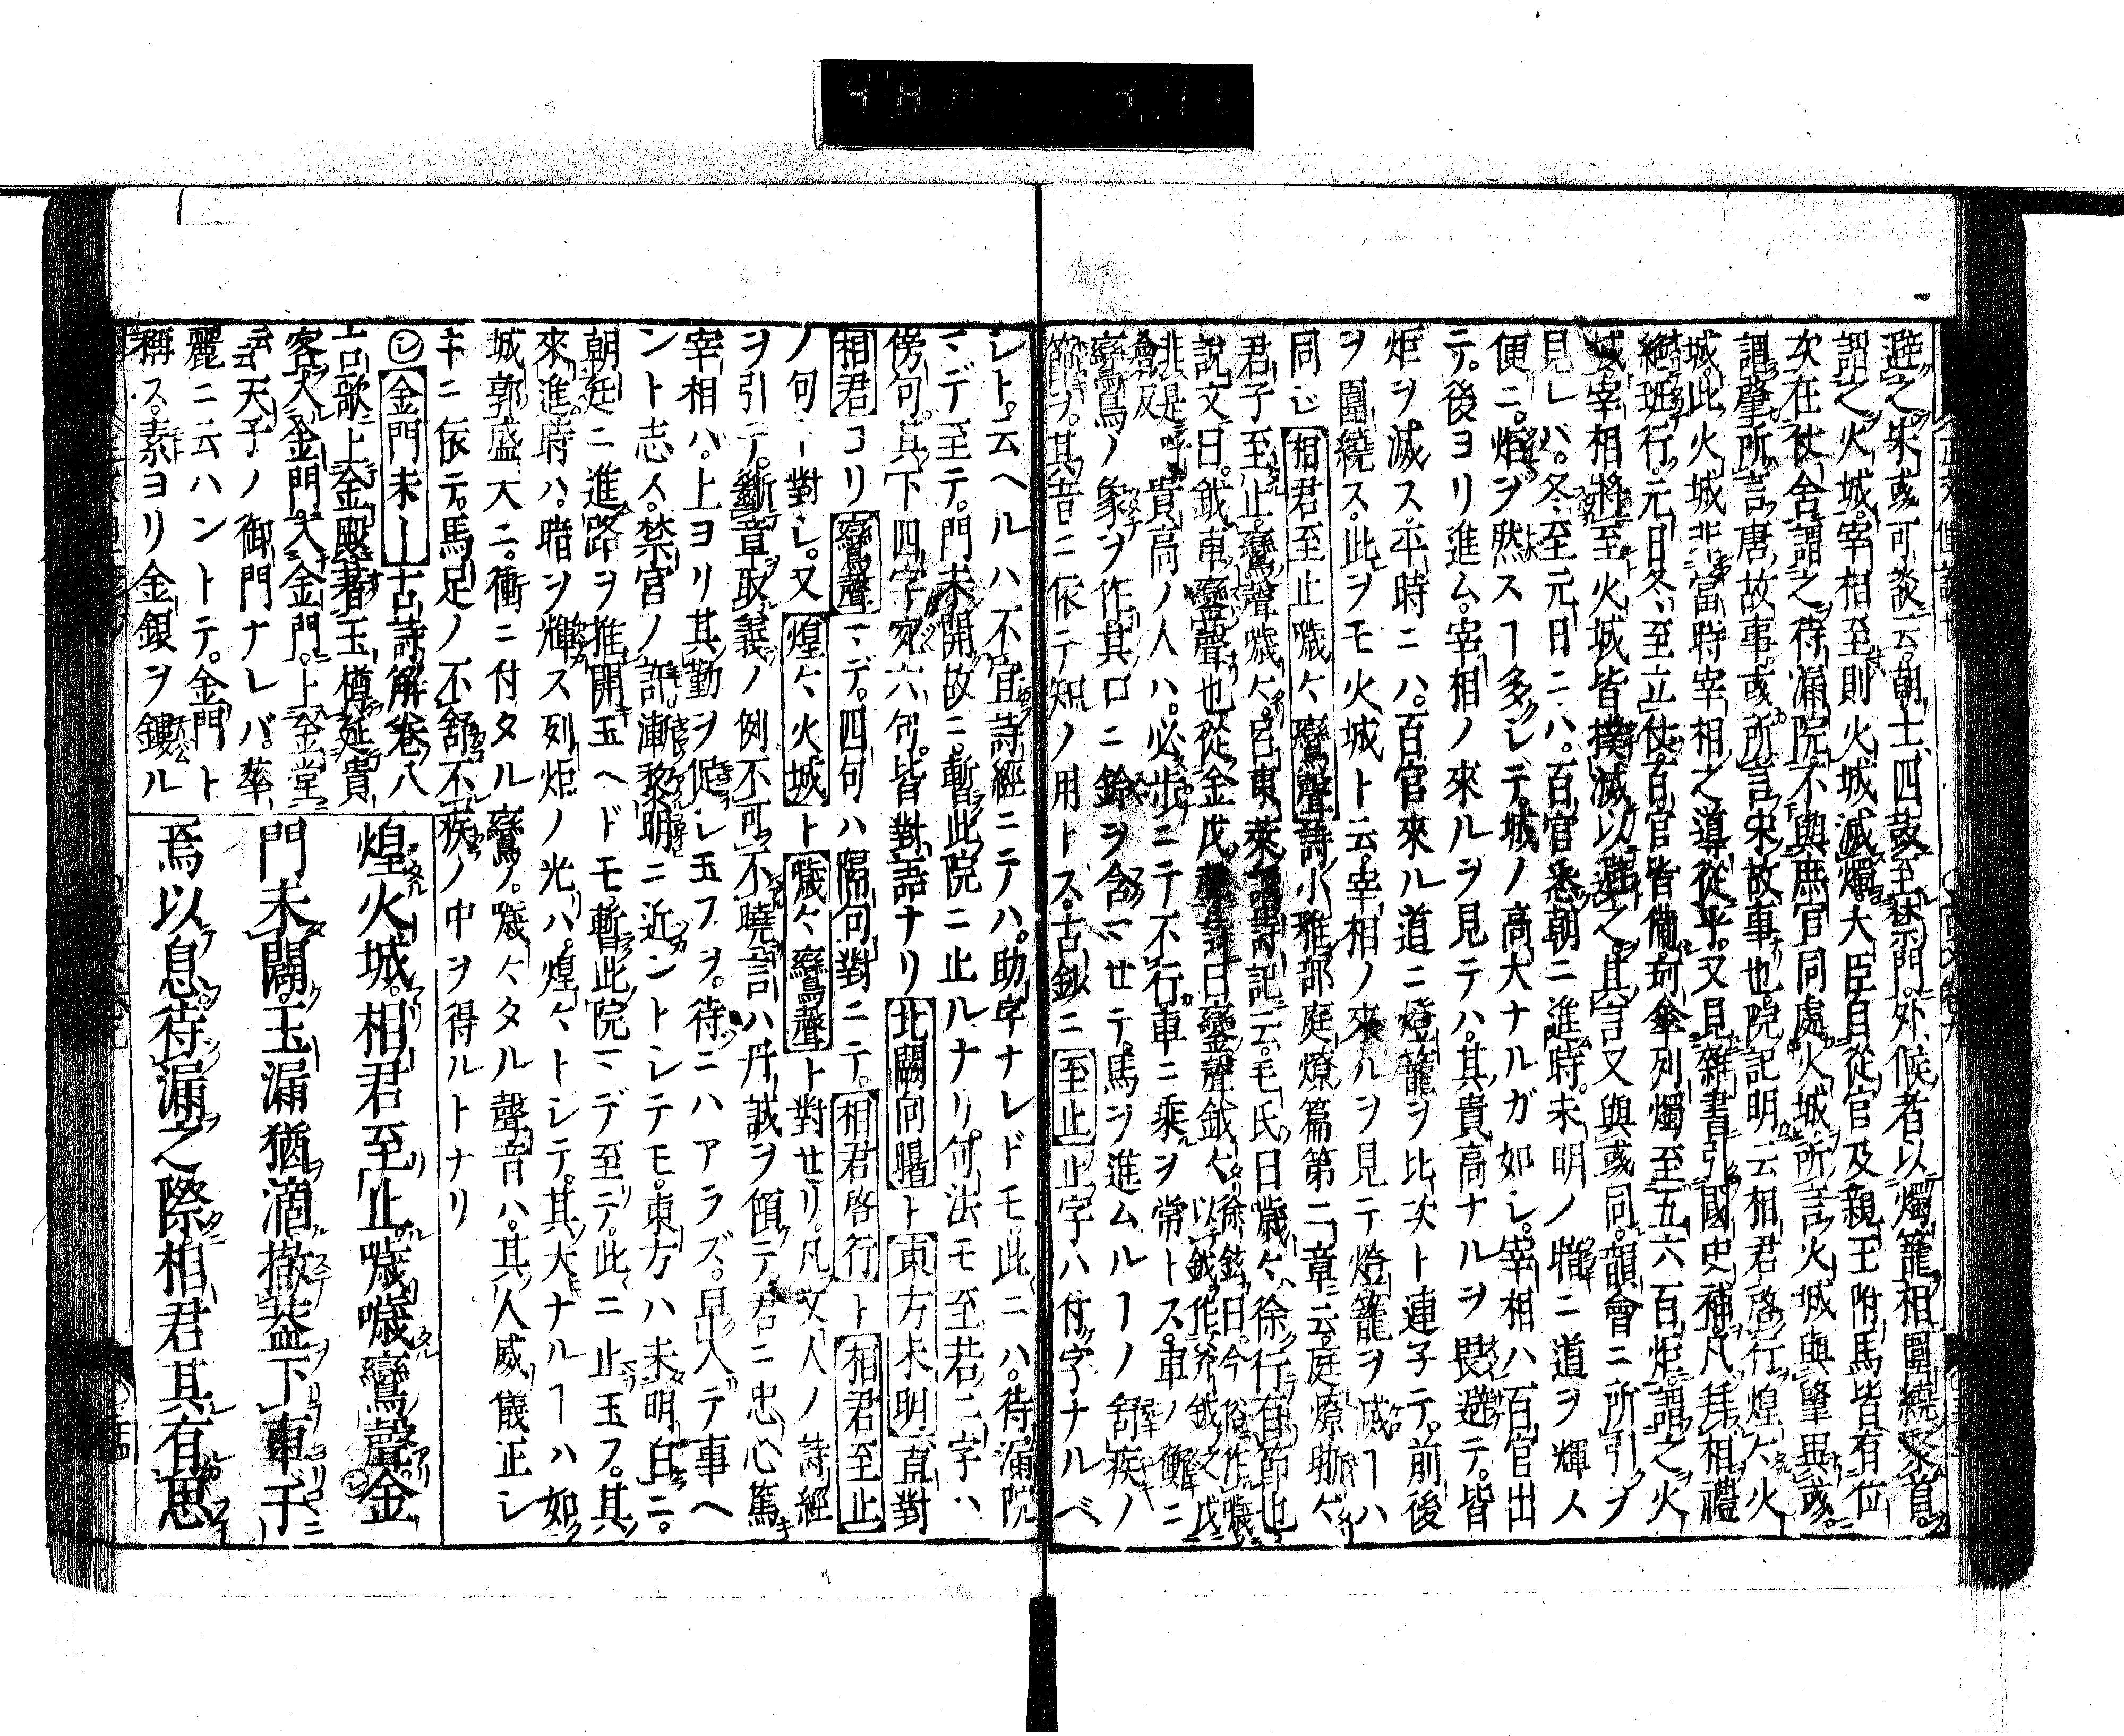 避之朱或可談云朝士四鼓至禁門外候者以燭籠相圍繞聚首
謂之火城宰相至則火城滅燭大臣自從官及親王駙馬皆有位
次在仗舍謂之待漏院不與庶官同處火城所言火城與肇異或
謂肇所言唐故事或所言宋故事也院記明云相君啓行煌々火
城此火城非當時宰相之導從乎又見雜書引國史補凡拜相禮
絶班行元日冬至立仗百官皆備珂傘列燭至五六百炬謂之火
城宰相將至火城皆撲滅以避之其言又與或同韻會ニ所引ヲ
見レバ冬至元日ニハ百官悉朝ニ進時未明ノ職ニ道ヲ輝人
便ニ炬ヲ燃スヿ多シテ城ノ高大ナルガ如シ宰相ハ百官出
テ後ヨリ進ム宰相ノ來ルヲ見テハ其貴高ナルヲ畏避テ皆
炬ヲ滅ス平時ニハ百官來ル道ニ燈籠ヲ比次ト連子テ前後
ヲ圍繞ス此ヲモ火城ト云宰相ノ來ルヲ見テ燈籠ヲ滅ヿハ
同シ相君至止噦々鸞聲詩小雅部庭燎篇第二章云庭燎晣々
君子至止鸞聲噦々呂東萊讀詩記云毛氏曰噦々徐行有節也
説文曰鉞車鑾聲也從金戉聲詩曰鑾聲鉞々徐鉉曰今俗作鐬以鉞作斧鉞之戉
非是呼會反貴高ノ人ハ必步ニテ不行車ニ乘ヲ常トス車ノ衡ニ
鸞鳥ノ象ヲ作其口ニ鈴ヲ含マセテ馬ヲ進ムルヿノ舒疾ノ
節ヲ其音ニ依テ知ノ用トス古鈔ニ至止止字ハ付字ナルベ
シト云ヘルハ不宜詩經ニテハ助字ナレドモ此ニハ待漏院
マデ至テ門未開故ニ暫此院ニ止ルナリ句法モ至若二字ハ
傍句其下四字宛六句皆對語ナリ北闕向曙ト東方未明直對
相君ヨリ鸞聲マデ四句ハ隔句對ニテ相君啓行ト相君至止
ノ句ト對シ又煌々火城ト噦々鸞聲ト對セリ凡文人ノ詩經
ヲ引テ斷章取義ノ例不可不曉言ハ丹誠ヲ傾テ君ニ忠心篤
宰相ハ上ヨリ其勤ヲ促シ玉フヲ待ニハアラズ早入デ事ヘ
ント志ス禁宮ノ許漸黎明ニ近ントシテモ東方ハ未明白ニ
朝廷ニ進路ヲ推開玉ヘドモ暫此院マデ至テ此ニ止玉フ其
來進時ハ暗ヲ輝ス列炬ノ光ハ煌々トシテ其大ナルヿハ如
城郭盛大ニ衝ニ付タル鸞ノ噦々タル聲音ハ其人威儀正シ
キニ依テ馬足ノ不舒不疾ノ中ヲ得ルトナリ
金門未ー古詩解卷八
古歌上金殿著玉樽延貴
客入金門入金門上金堂
云云天子ノ御門ナレバ華
麗ニ云ハントテ金門ト
稱ス素ヨリ金銀ヲ鏤ル
煌火城相君至止噦噦鸞聲金
門未闢玉漏猶滴撤葢下車于
焉以息待漏之際相君其有思